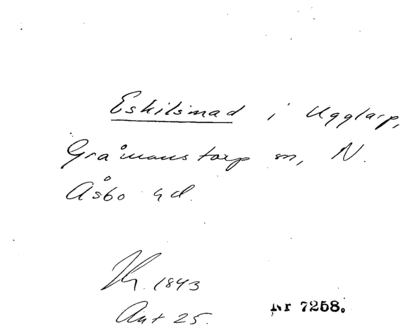 Eskilsmad i Ugglarp,
Gråmanstorp sn, N.
Åsbo hd.
1843
Akt 25. Nr 7258.